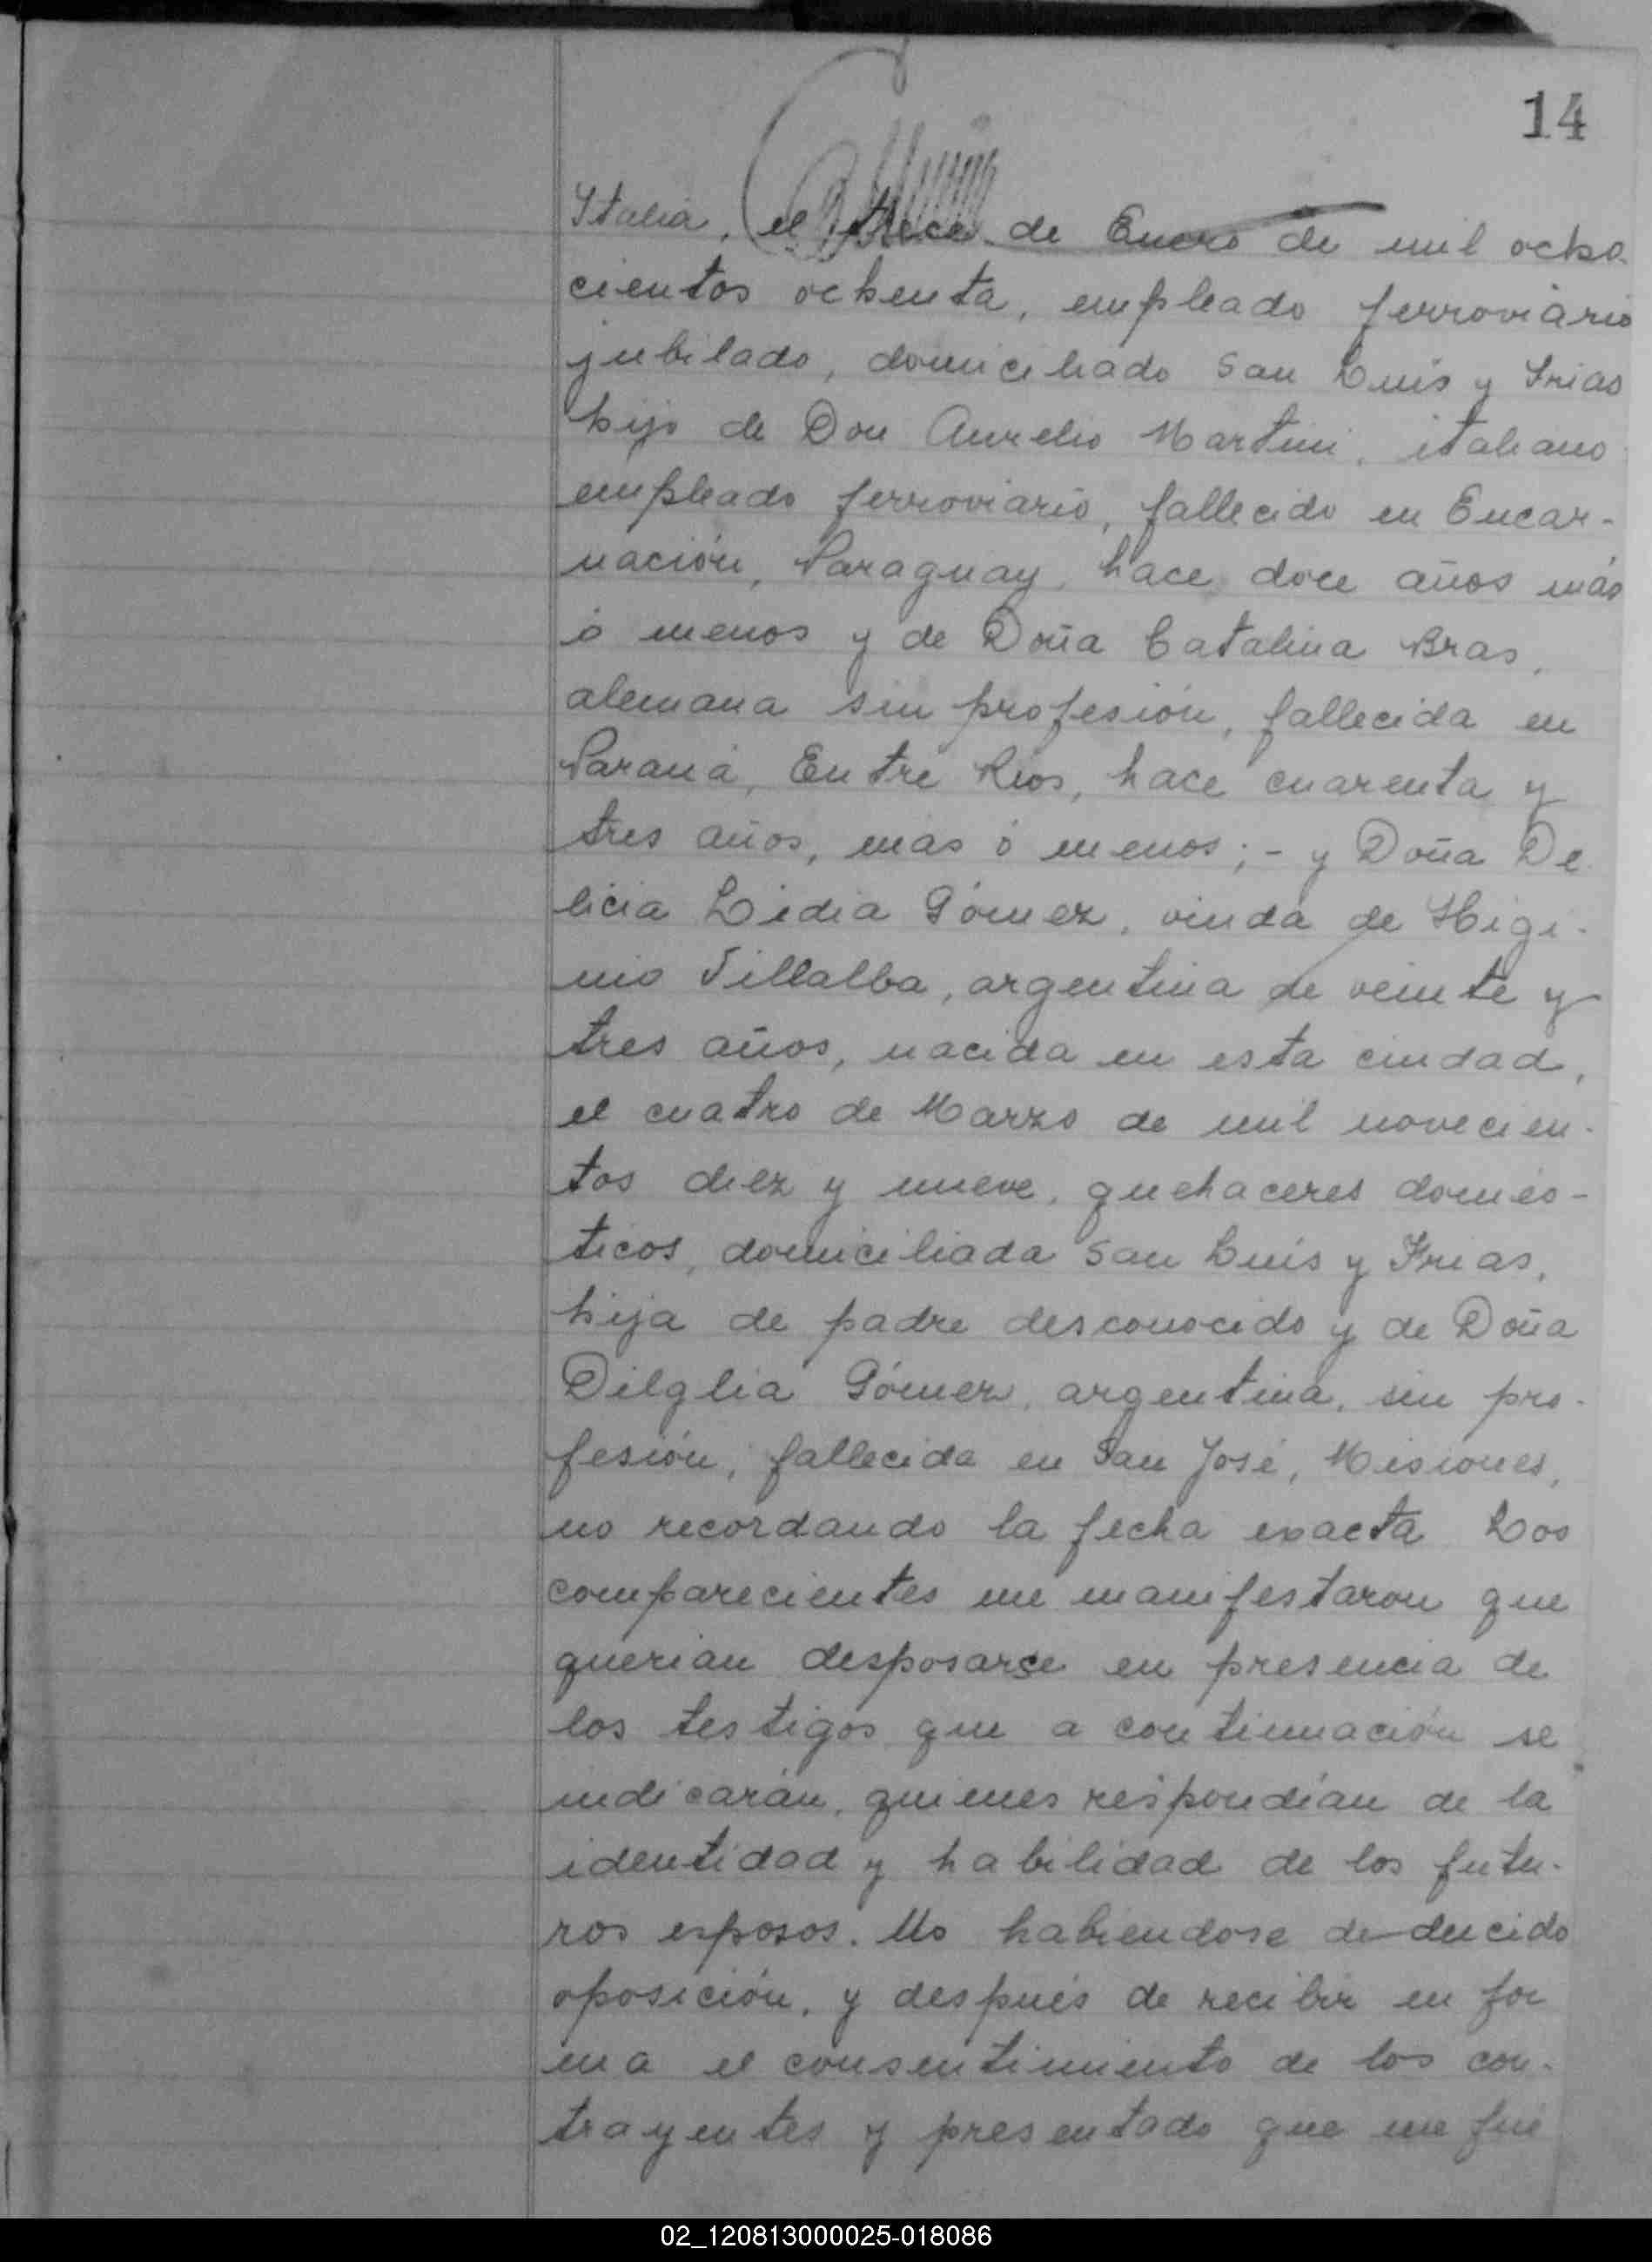 14
Italia, el trece de Enero de mil ocho-
cientos ochenta, empleado ferroviario
jubilado, domiciliado San Luis y Frias
hijo de Don Aurelio Martini, italiano
empleado ferroviario, fallecido en Encar-
nación, Paraguay, hace doce años más
ó menos y de Doña Catalina Bras,
alemana sin profesión, fallecida en
Paraná, Entre Rios, hace cuarenta y
tres años, más ó menos;- y Doña De
licia Lidia Gómez, viuda de Higi-
nio Villalba, argentina de veinte y
tres años, nacida en esta ciudad,
el cuatro de Marzo de mil novecien-
tos diez y nueve, quehaceres domés-
ticos, domiciliada San Luis y Frias,
hija de padre desconocido y de Doña
Dilglia Gómez, argentina, sin pro-
fesión, fallecida en San José, Misiones,
no recordando la fecha exacta Los
comparecientes me manifestaron que
querian desposarse en presencia de
los testigos que a continuación se
indicarán, quienes respondían de la
identidad y habilidad de los futu-
ros esposos. No habiendose deducido
oposición, y después de recibir en for
ma el consentimiento de los con-
trayentes y presentado que me fué
02_120813000025-018086